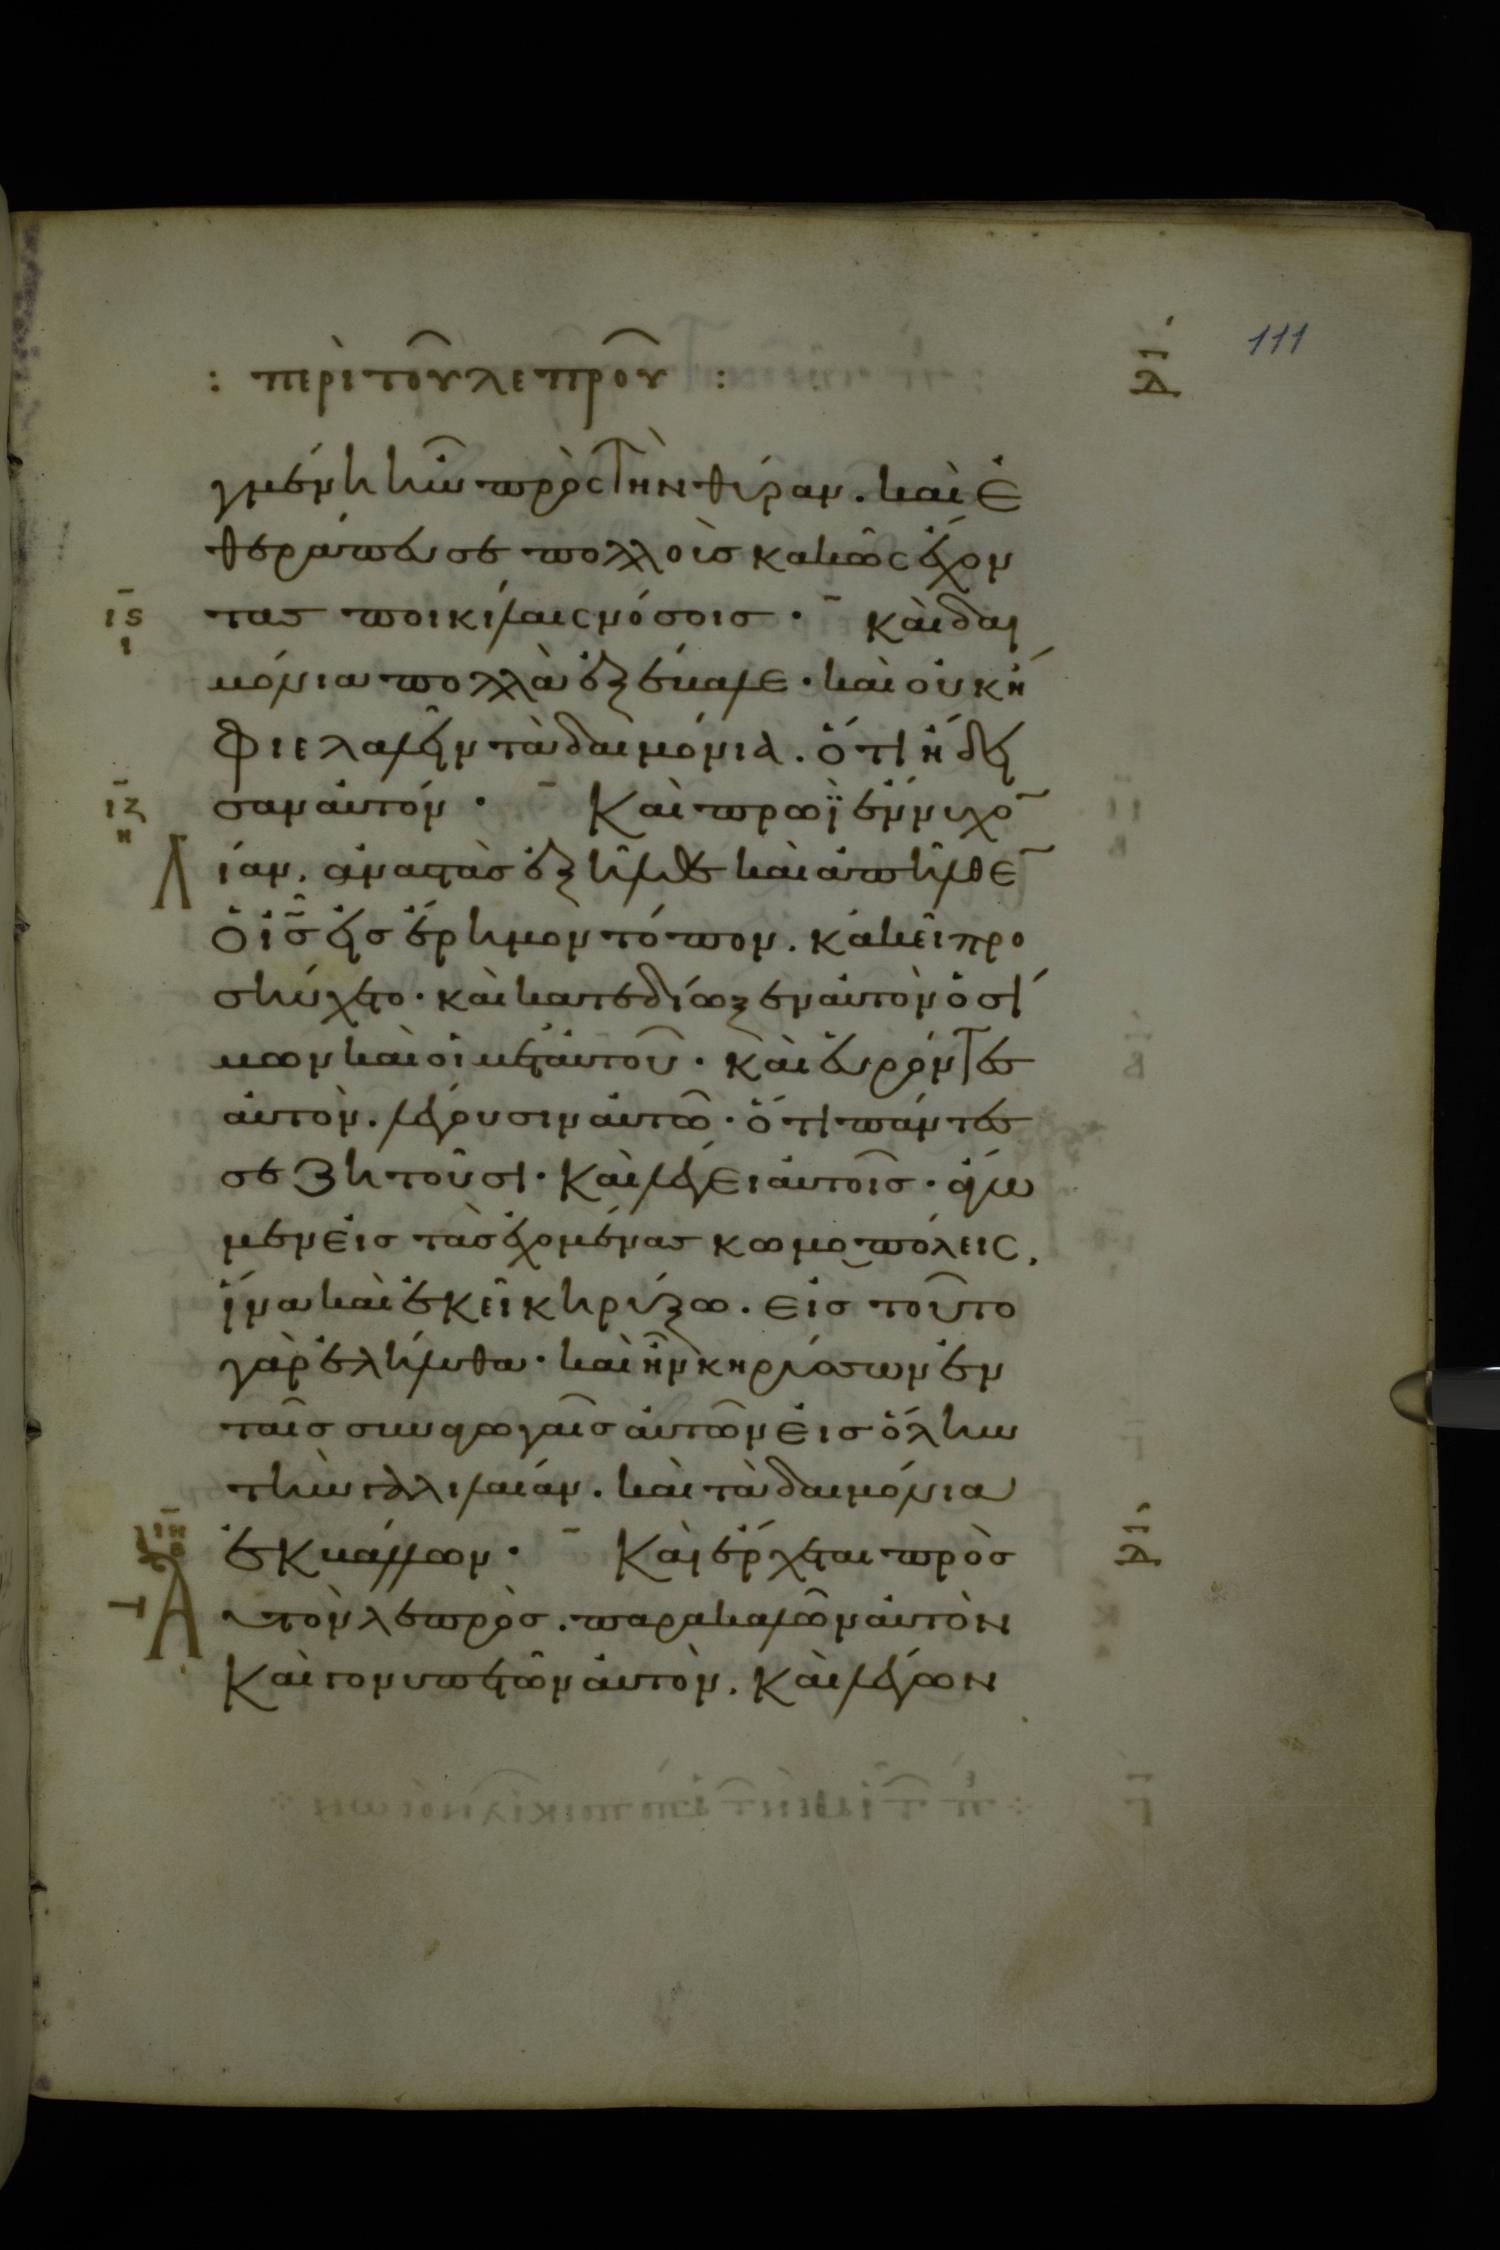 : περὶ τοῦ λεπροῦ :
δ̄
111
γμένη ἦν πρὸς τὴν θύραν. καὶ ἐ
θεράπευσε πολλοὺς κακῶς ἔχον
τας ποικίλαις νόσοις · καὶ δαι
ις
ι
μόνια πολλὰ ἐξέβαλε · καὶ οὐκ ἤ
φιε λαλεῖν τὰ δαιμόνια. ὅτι ἤδει
σαν αὐτόν · Καὶ πρωῒ ἔννυχο̄
ιζ
η
λίαν. ἀναστὰς ἐξῆλθε καὶ ἀπῆλθε̄
ὁ ι̅ς̅ εἰς ἔρημον τόπον. κἀκεῖ προ
σηύχετο · καὶ κατεδίωξεν αὐτὸν ὁ σί
μων καὶ οἱ μετ' αὐτοῦ · καὶ εὑρόντες
αὐτὸν. λέγουσιν αὐτῶ · ὅτι πάντες
σε ζητοῦσι · καὶ λέγει αὐτοῖς · ἄγω
μεν εἰς τὰς ἐχομένας κωμοπόλεις.
ἵνα καὶ ἐκεῖ κηρύξω. εἰς τοῦτο
γὰρ ἐλήλυθα · καὶ ἦν κηρύσσων ἐν
ταῖς συναγωγαῖς αὐτῶν εἰς ὅλην
τὴν γαλιλαίαν. καὶ τὰ δαιμόνια
ἐκβάλλων · Καὶ ἔρχεται πρὸς
ιη
δ̄
αὐτὸν λεπρὸς. παρακαλῶν αὐτὸν
καὶ γονυπετῶν αὐτὸν. καὶ λέγων